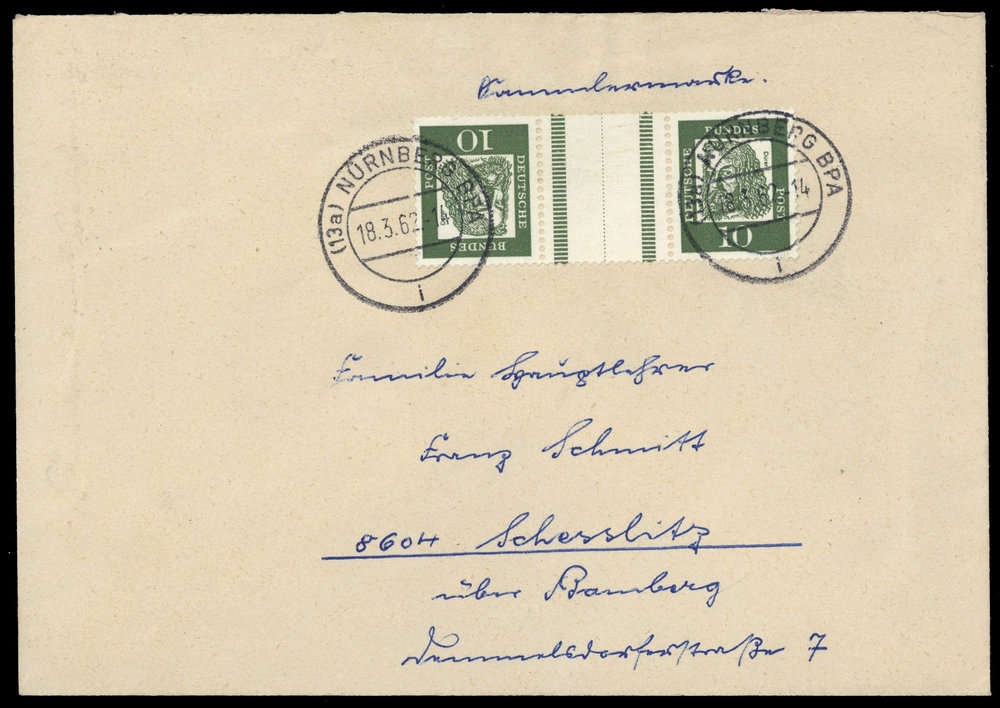 Sammlermarke.
10
DEUTSCHE
BUNDES
POST
BUNDES
DEUTSCHE
POST
10
(13a) NÜRNBERG BPA
18.3.62-14
i
(13a) NÜRNBERG BPA
18.3.62-14
i
Familie Hauptlehrer
Franz Schmitt
8604 Schesslitz
über Bamberg
Demmelsdorferstraße 7